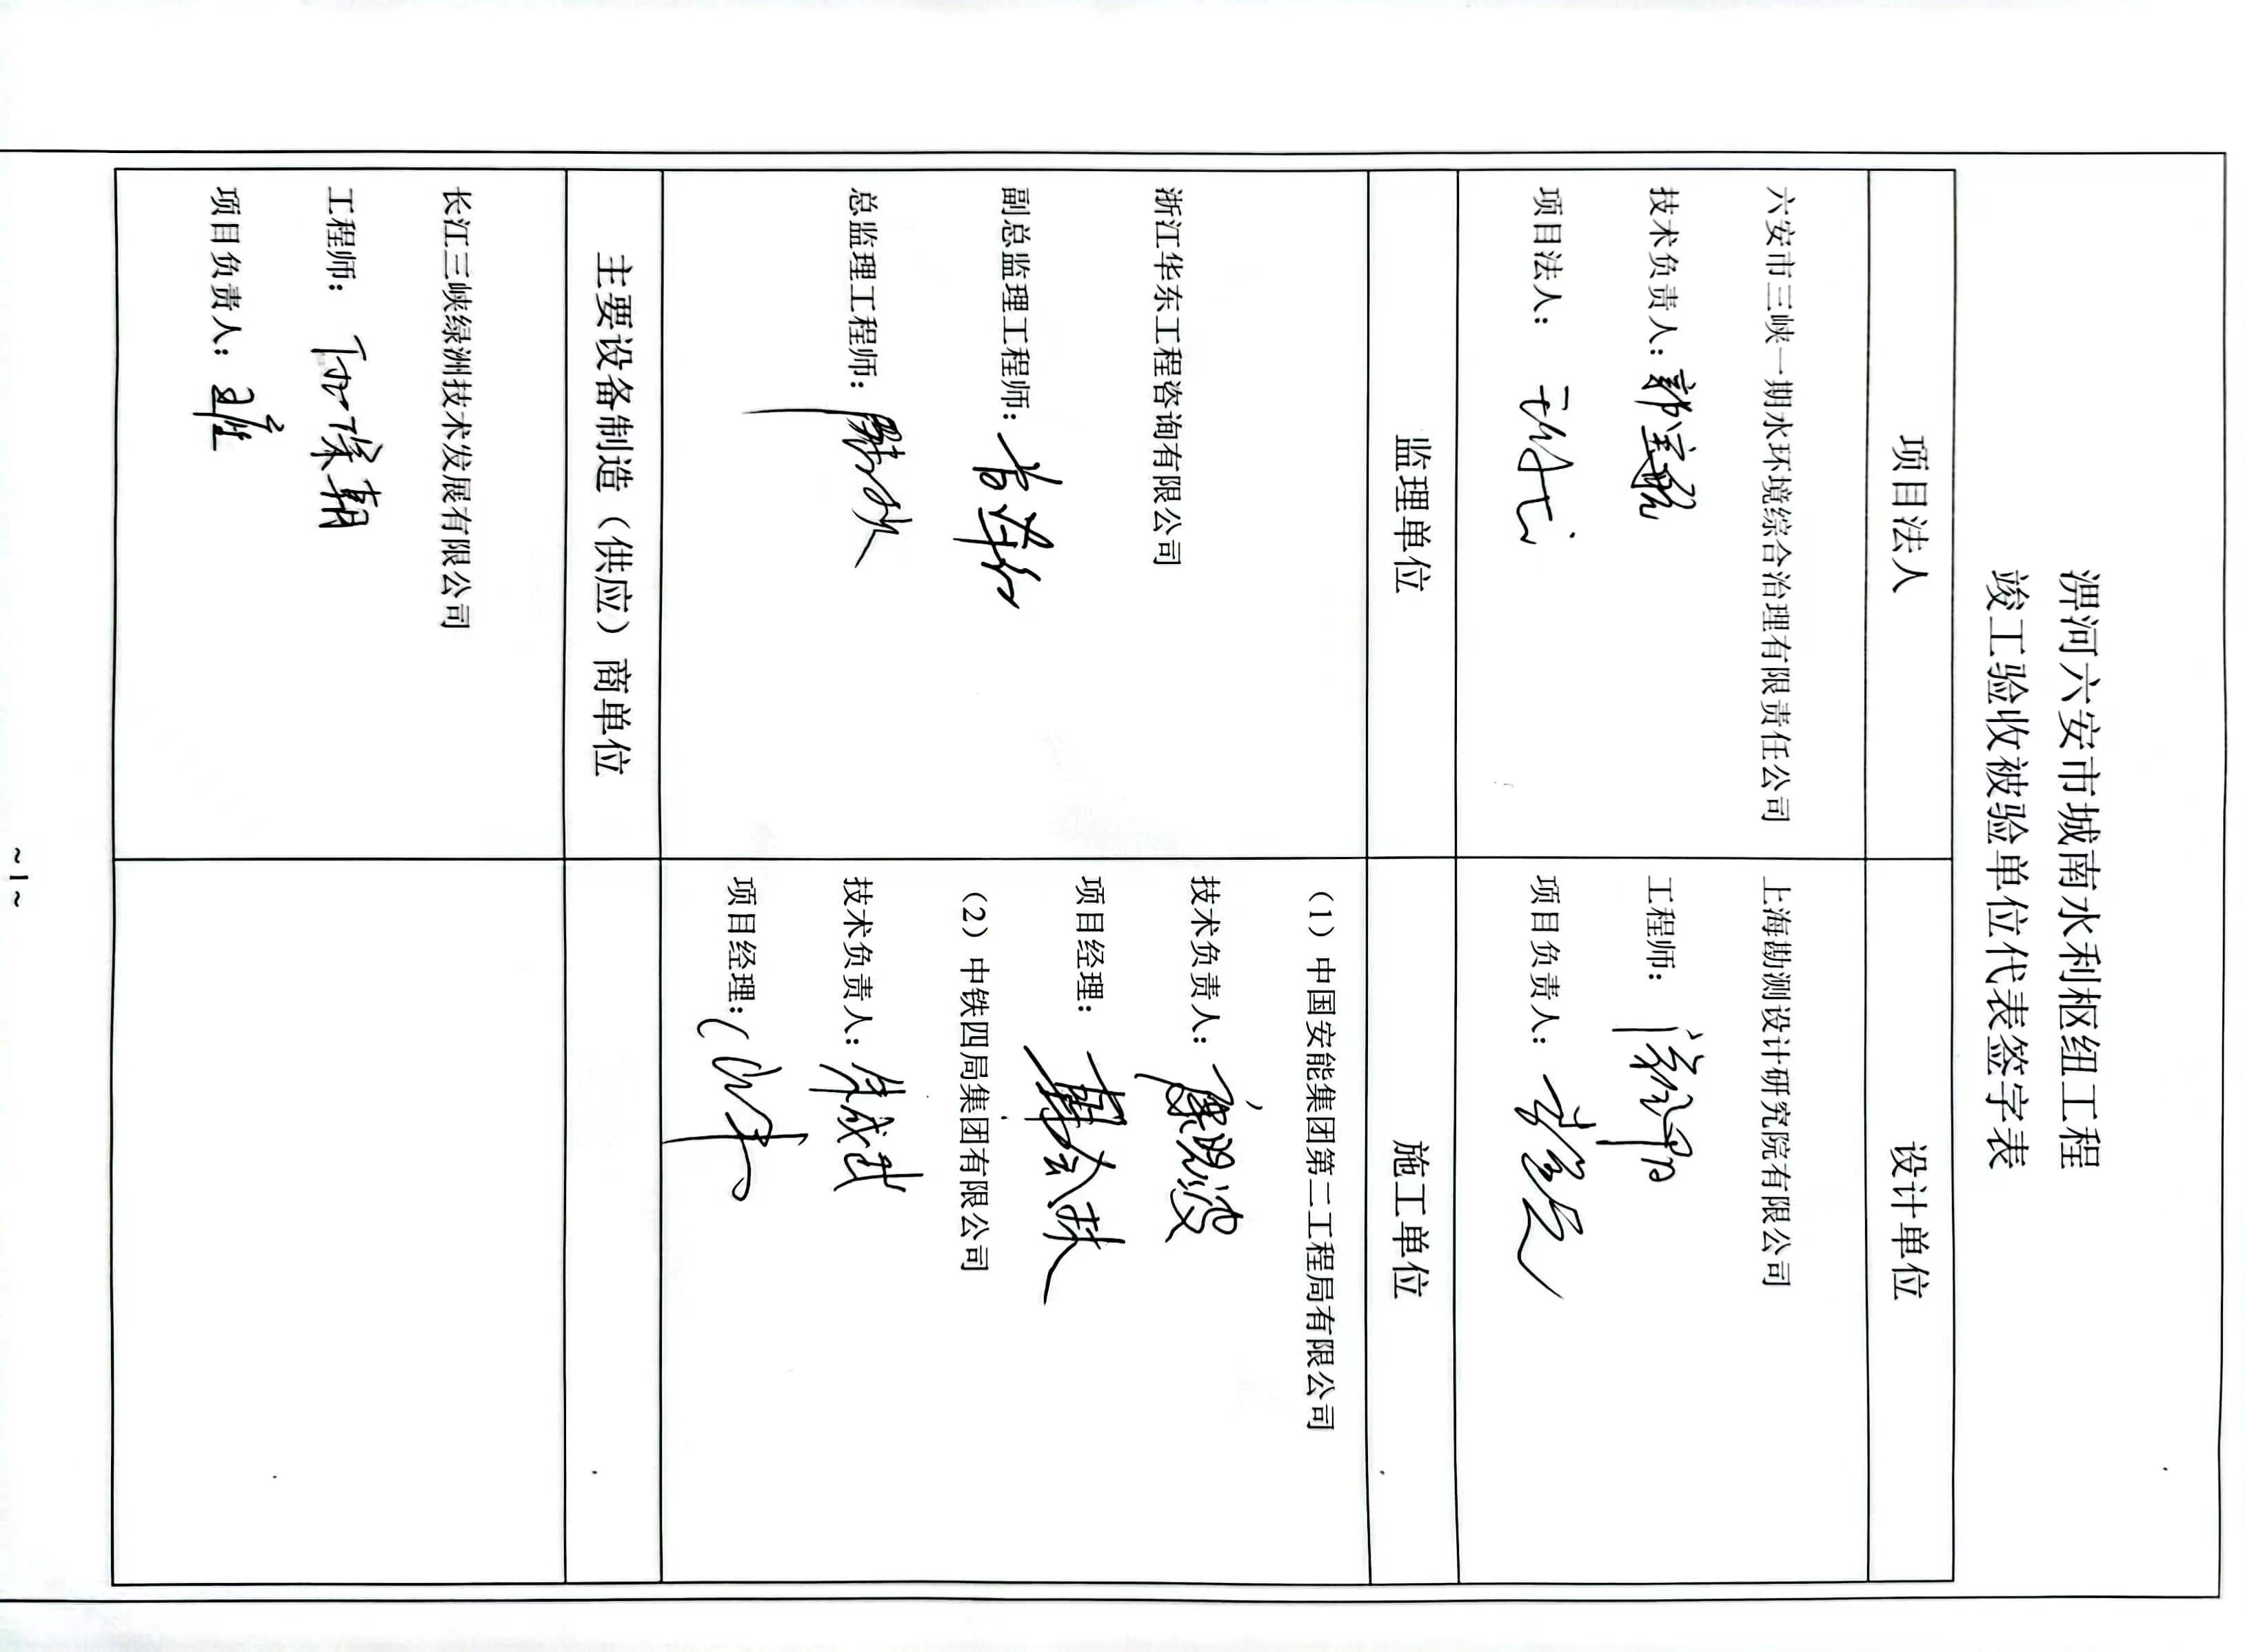 淠河六安市城南水利枢纽工程
竣工验收被验单位代表签字表
项目法人
设计单位
六安市三峡一期水环境综合治理有限责任公司
技术负责人：
项目法人：
上海勘测设计研究院有限公司
工程师：
项目负责人：
监理单位
施工单位
浙江华东工程咨询有限公司
副总监理工程师：
总监理工程师：
（1）中国安能集团第二工程局有限公司
技术负责人：
项目经理：
（2）中铁四局集团有限公司
技术负责人：朱成武
项目经理：
主要设备制造（供应）商单位
长江三峡绿洲技术发展有限公司
工程师：
项目负责人：
~ 1 ~